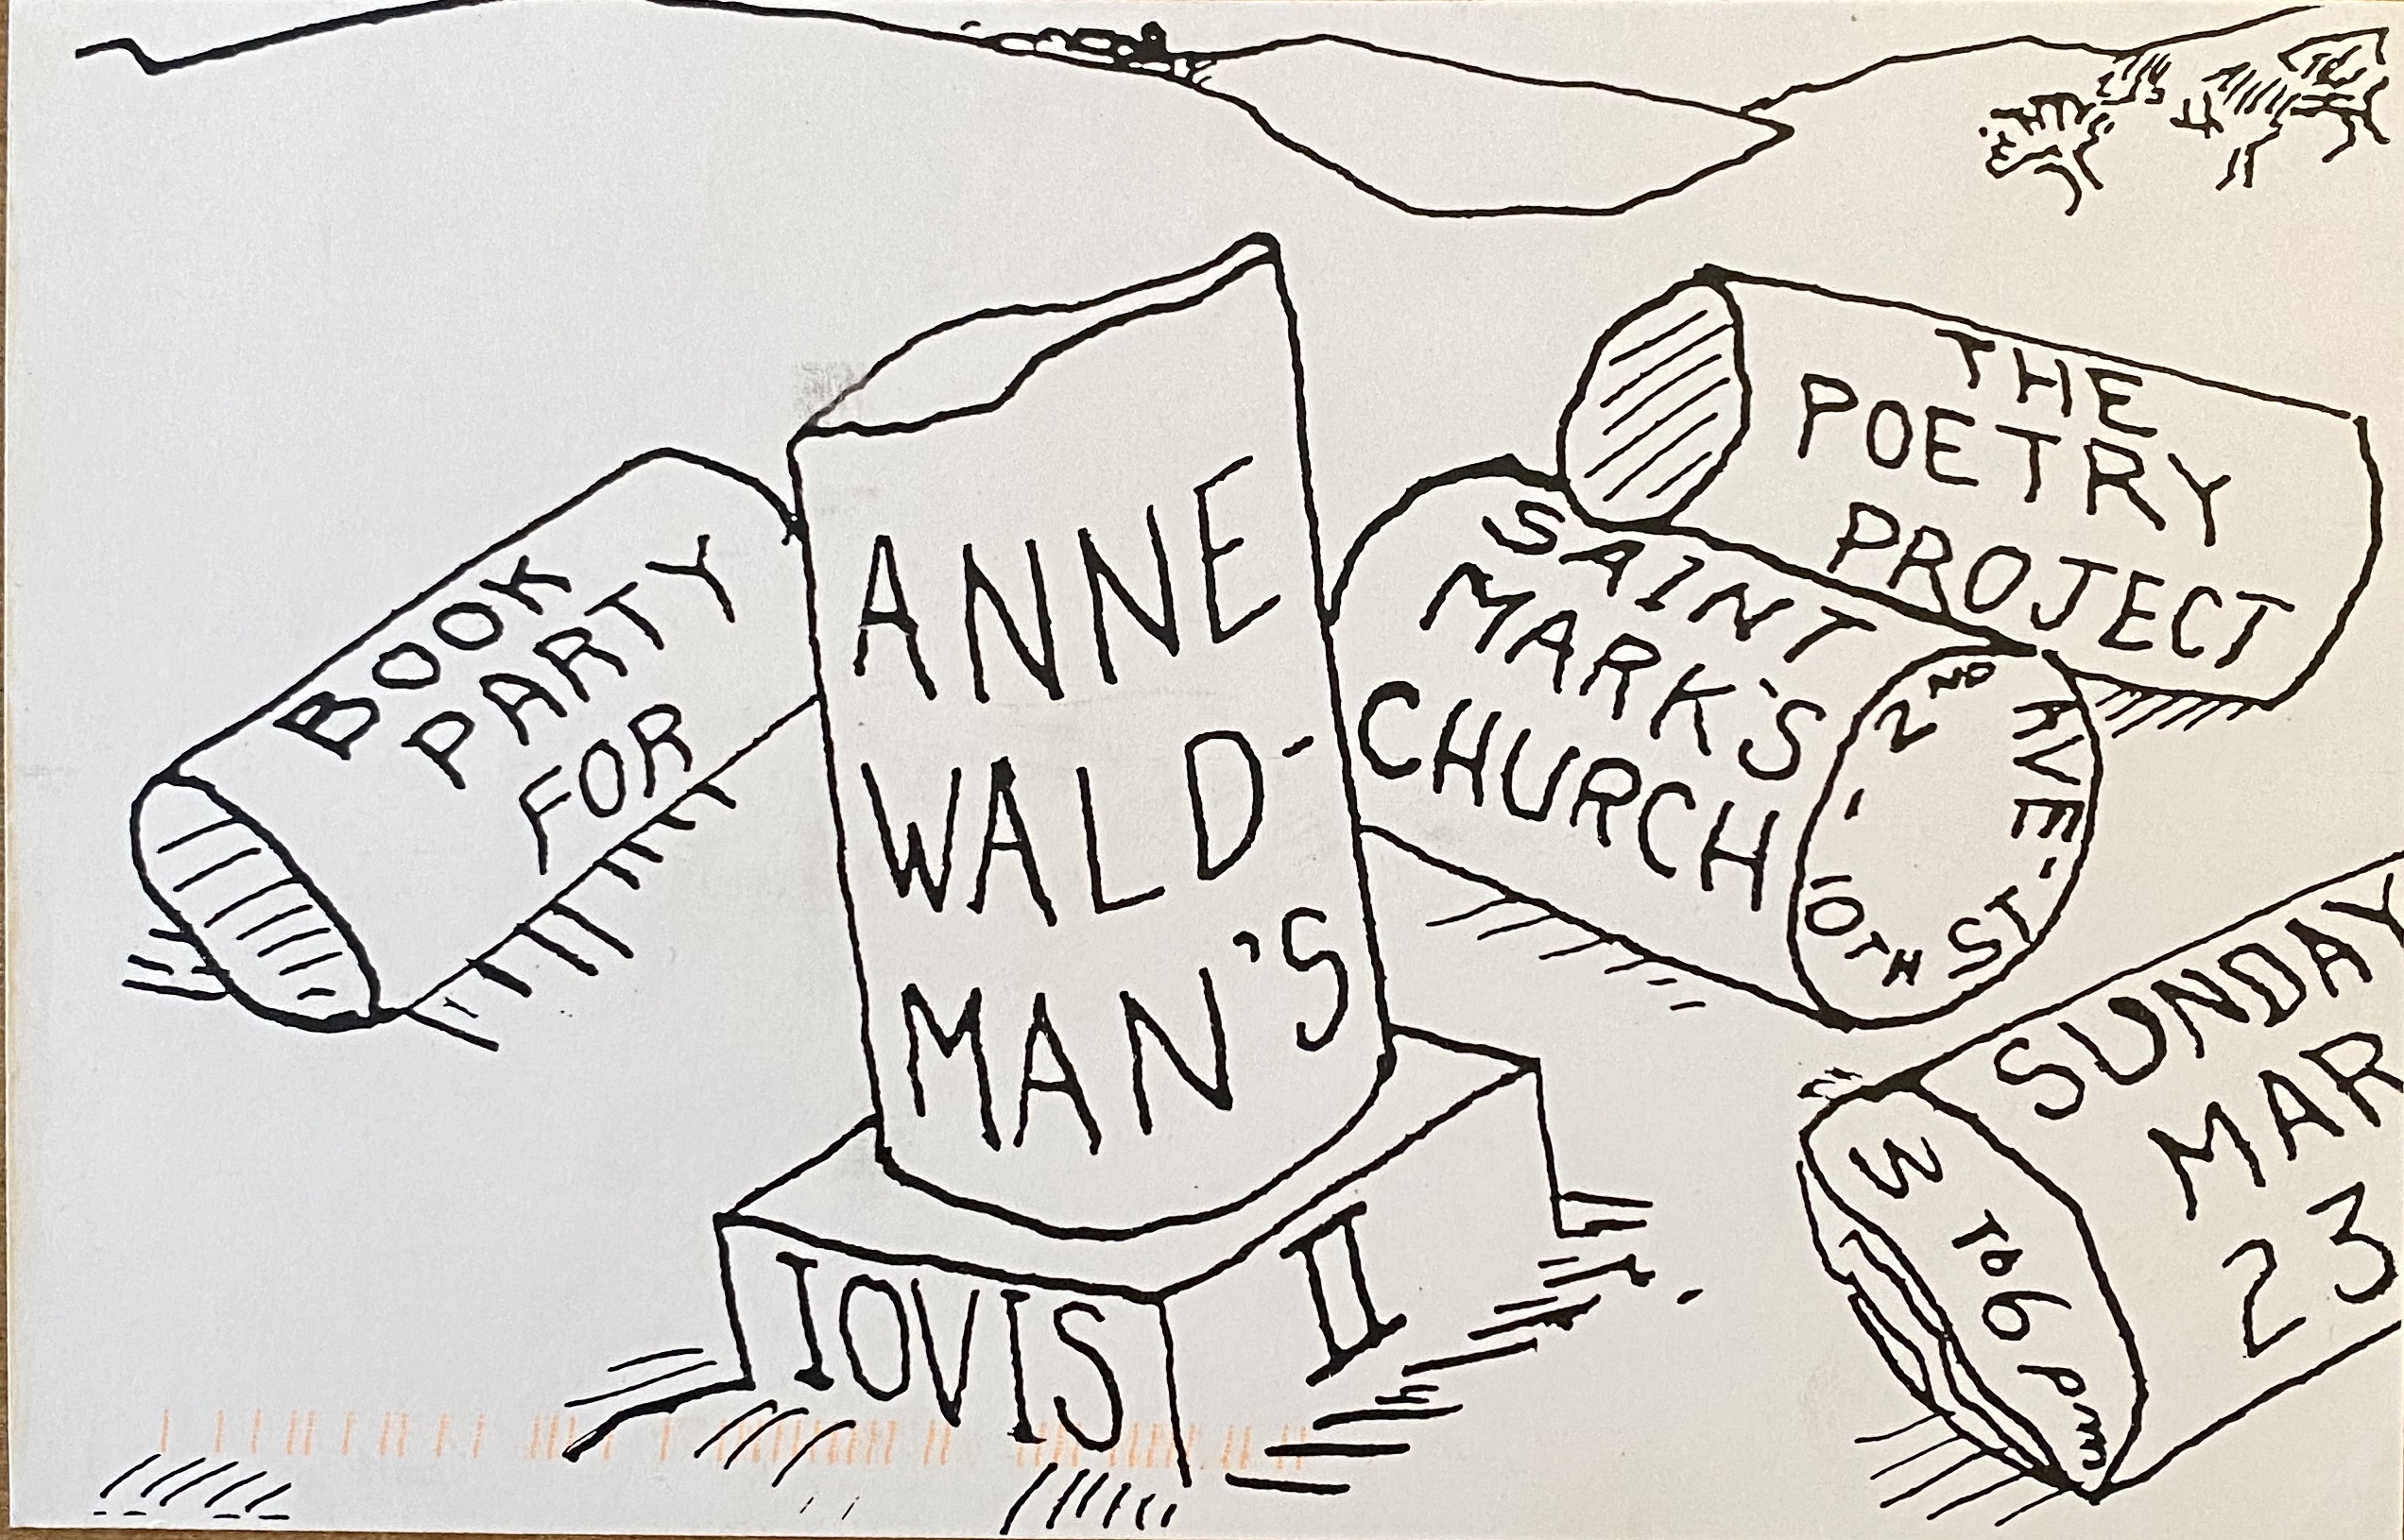 BOOK
PARTY
FOR
ANNE
WALD-
MAN'S
IOVIS
II
THE
POETRY
PROJECT
SAINT
MARK'S
CHURCH
2ND AVE. - 10TH ST. -
SUNDAY
MAR
23
3 TO 6 pm